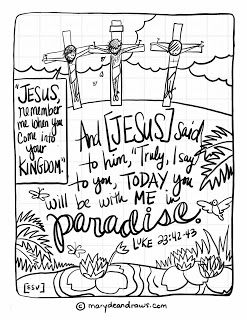 "JESUS,
remember
me when you
come into
your
KINGDOM."
And [JESUS] said
to him, "Truly, I say
to you, TODAY you
will be with ME in
paradise.
LUKE 23:42-43
[ESV]
© marydeandraws.com